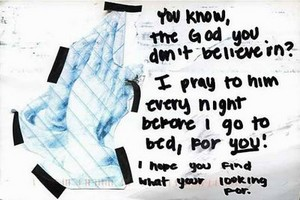 You know,
the God you
don't believe in?
I pray to him
every night
before I go to
bed, for you!
I hope you find
what your looking
for.